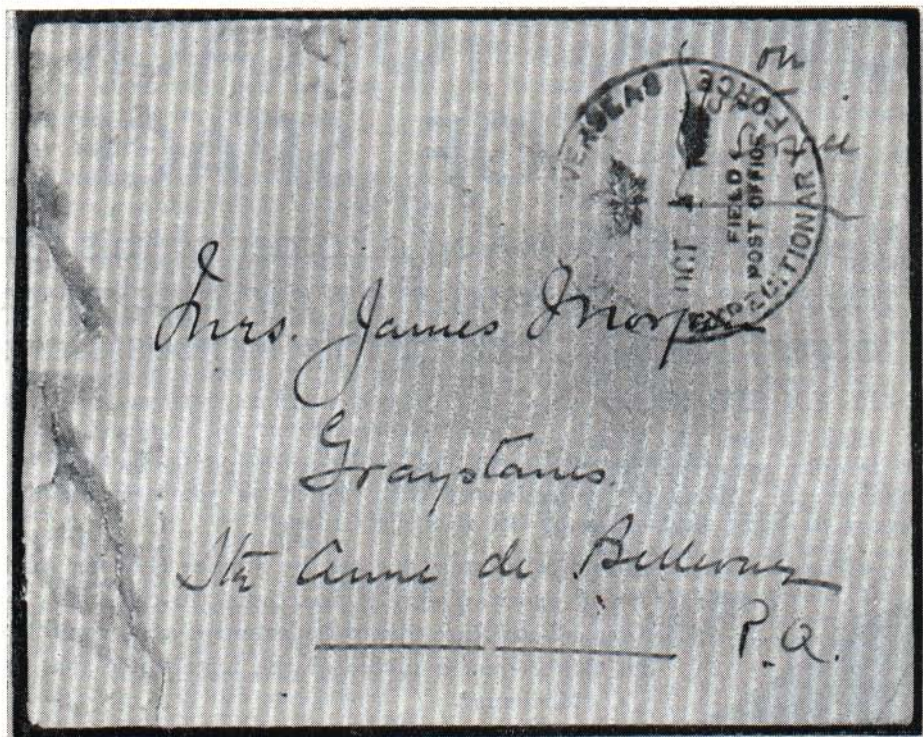 on
OVERSEAS
EXPEDITIONARY FORCE
OCT
FIELD
POST OFFICE
Mrs. James Morgan
Graystanes.
Ste Anne de Bellevue
P.Q.